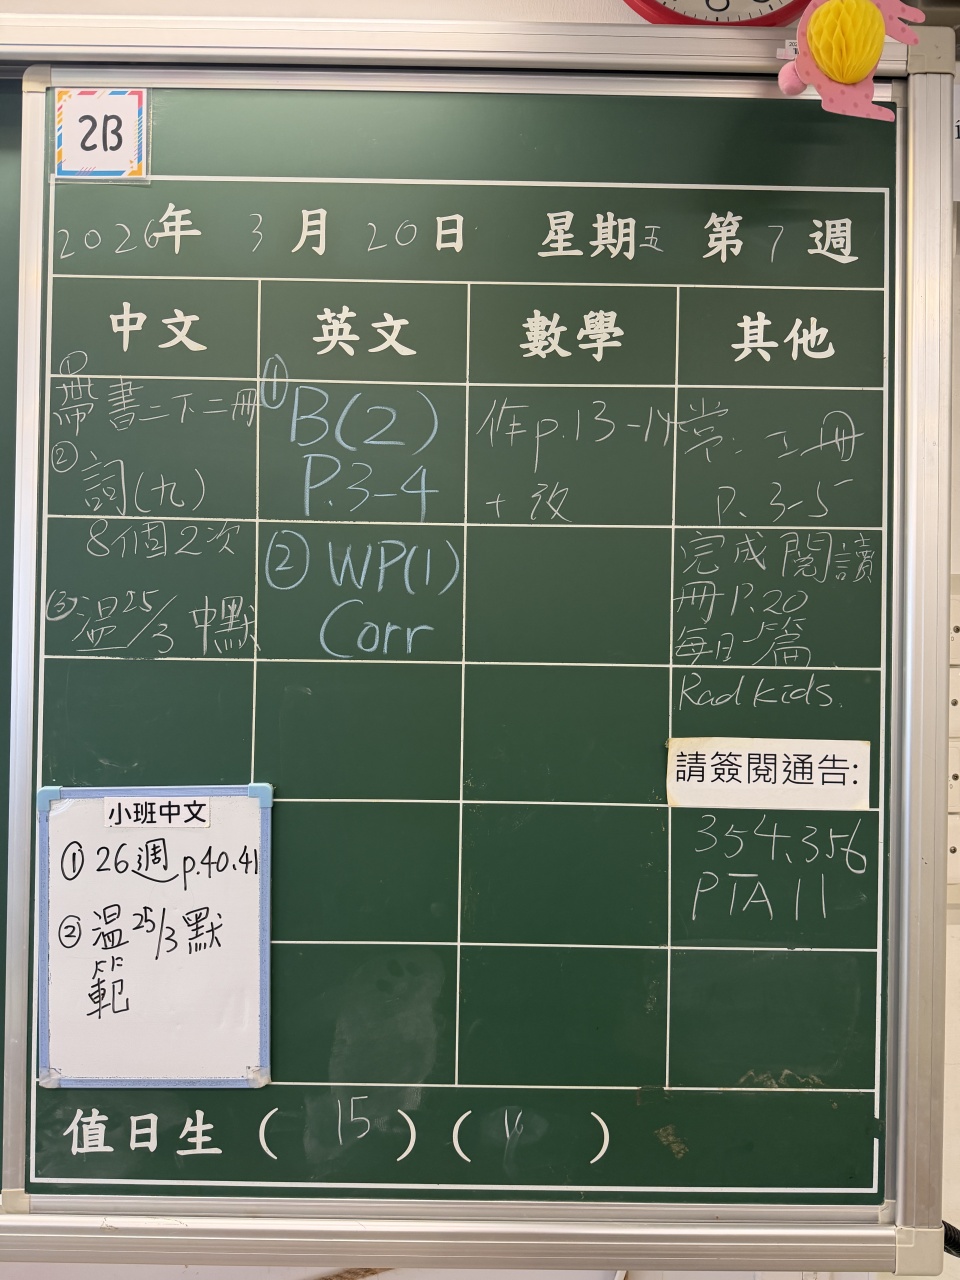 2B
2026年 3月20日 星期五 第7週
中文 英文 數學 其他
① 帶書二下二冊
② 詞(九)
8個2次
③ 温25/3 中默
① B(2)
P.3-4
② WP(1)
Corr
作p.13-14
+改
常: 二冊
P. 3-5
完成閱讀
冊P.20
每日一篇
Radkids.
請簽閱通告:
354、356
PTA 11
小班中文
① 26週 p.40.41
② 温25/3默
範
值日生 ( 15 ) ( )